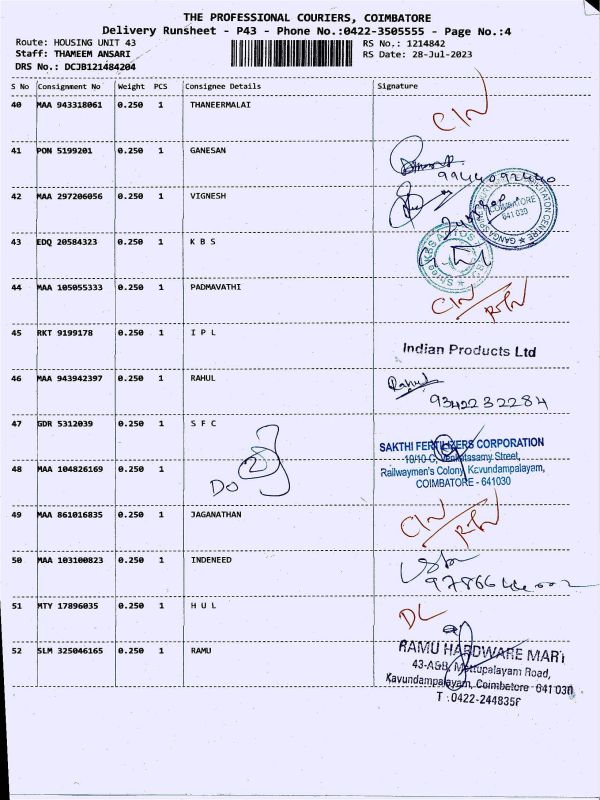 THE PROFESSIONAL COURIERS, COIMBATORE
Delivery Runsheet - P43 - Phone No.:0422-3505555 - Page No.:4
Route: HOUSING UNIT 43
RS No.: 1214842
Staff: THAMEEM ANSARI
RS Date: 28-Jul-2023
DRS No.: DCJB121484204
S No Consignment No Weight PCS Consignee Details Signature
40 MAA 943318061 0.250 1 THANEERMALAI
41 PON 5199201 0.250 1 GANESAN
9944092440
42 MAA 297206056 0.250 1 VIGNESH
COIMBATORE
641 030
43 EDQ 20584323 0.250 1 K B S
44 MAA 105055333 0.250 1 PADMAVATHI
45 RKT 9199178 0.250 1 I P L
Indian Products Ltd
46 MAA 943942397 0.250 1 RAHUL
Rahul
9342232284
47 GDR 5312039 0.250 1 S F C
SAKTHI FERTILIZERS CORPORATION
10/10-C, Venkatasamy Street,
Railwaymen's Colony, Kavundampalayam,
COIMBATORE - 641030
48 MAA 104826169 0.250 1
Do
49 MAA 861016835 0.250 1 JAGANATHAN
50 MAA 103100823 0.250 1 INDENEED
51 MTY 17896035 0.250 1 H U L
DL
52 SLM 325046165 0.250 1 RAMU
RAMU HARDWARE MART
43-A&B, Mettupalayam Road,
Kavundampalayam, Coimbatore - 641 030
T : 0422-244835